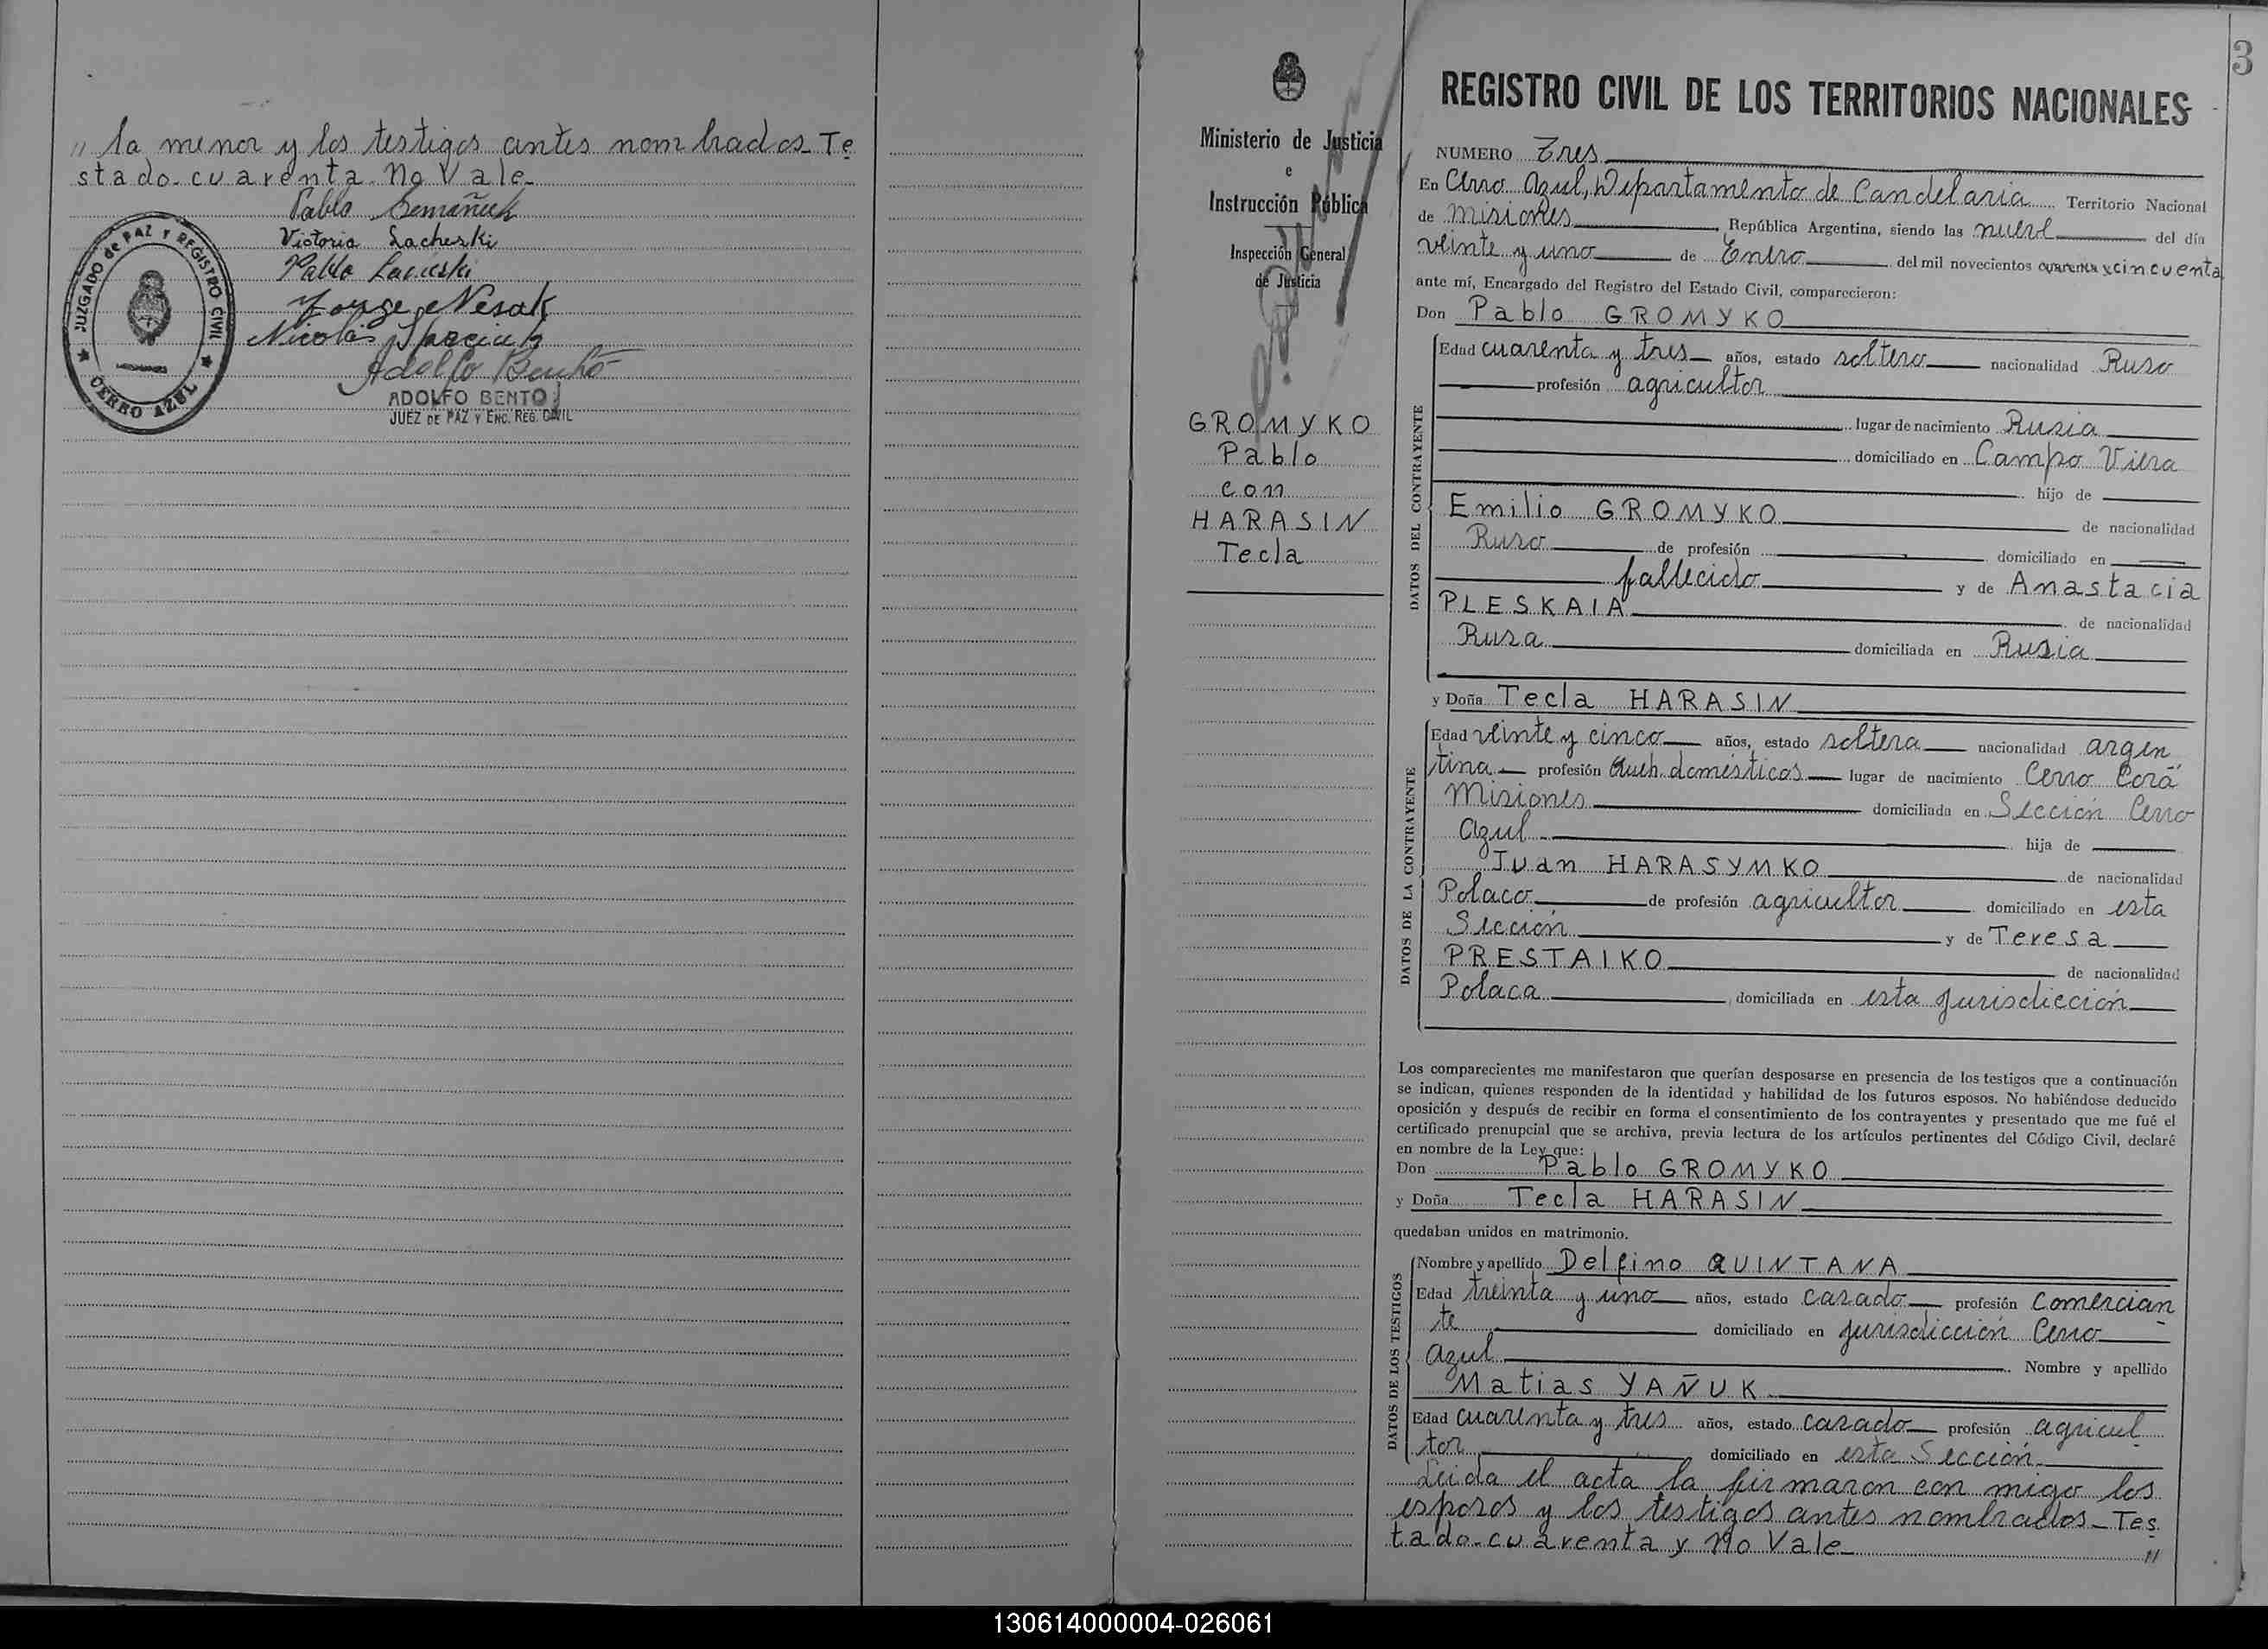 " la menor y los testigos antes nombrados_Te
stado-cuarenta-No Vale-
Pablo Semañuk
Victoria Lacheski
Pablo
Jorge Nesak
Nicolás
Adolfo Bento
ADOLFO BENTO
JUEZ DE PAZ Y ENC. REG. CIVIL
JUZGADO de PAZ Y REGISTRO CIVIL
CERRO AZUL
Ministerio de Justicia
e
Instrucción Pública
Inspección General
de Justicia
GROMYKO
Pablo
con
HARASIN
Tecla
3
REGISTRO CIVIL DE LOS TERRITORIOS NACIONALES
NUMERO Tres
En Cerro Azul, Departamento de Candelaria Territorio Nacional
de Misiones República Argentina, siendo las nueve del día
veinte y uno de Enero del mil novecientos cuarenta y cincuenta
ante mí, Encargado del Registro del Estado Civil, comparecieron:
Don Pablo GROMYKO
DATOS DEL CONTRAYENTE
Edad cuarenta y tres años, estado soltero nacionalidad Ruso
profesión agricultor
lugar de nacimiento Rusia
domiciliado en Campo Viera
hijo de
Emilio GROMYKO de nacionalidad
Ruso de profesión domiciliado en
fallecido y de Anastacia
PLESKAIA de nacionalidad
Rusa domiciliada en Rusia
y Doña Tecla HARASIN
DATOS DE LA CONTRAYENTE
Edad veinte y cinco años, estado soltera nacionalidad argen
tina profesión Queh. domésticos lugar de nacimiento Cerro Corá
Misiones domiciliada en Sección Cerro
Azul hija de
Juan HARASYMKO de nacionalidad
Polaco de profesión agricultor domiciliado en esta
Sección y de Teresa
PRESTAIKO de nacionalidad
Polaca domiciliada en esta jurisdicción
Los comparecientes me manifestaron que querían desposarse en presencia de los testigos que a continuación
se indican, quienes responden de la identidad y habilidad de los futuros esposos. No habiéndose deducido
oposición y después de recibir en forma el consentimiento de los contrayentes y presentado que me fué el
certificado prenupcial que se archiva, previa lectura de los artículos pertinentes del Código Civil, declaré
en nombre de la Ley que:
Don Pablo GROMYKO
y Doña Tecla HARASIN
quedaban unidos en matrimonio.
DATOS DE LOS TESTIGOS
Nombre y apellido Delfino QUINTANA
Edad treinta y uno años, estado casado profesión Comercian
te domiciliado en jurisdicción Cerro
Azul Nombre y apellido
Matias YAÑUK
Edad cuarenta y tres años, estado casado profesión agricul
tor domiciliado en esta Sección
Leida el acta la firmaron con migo los
esposos y los testigos antes nombrados_Tes
tado-cuarenta y No Vale_ "
130614000004-026061